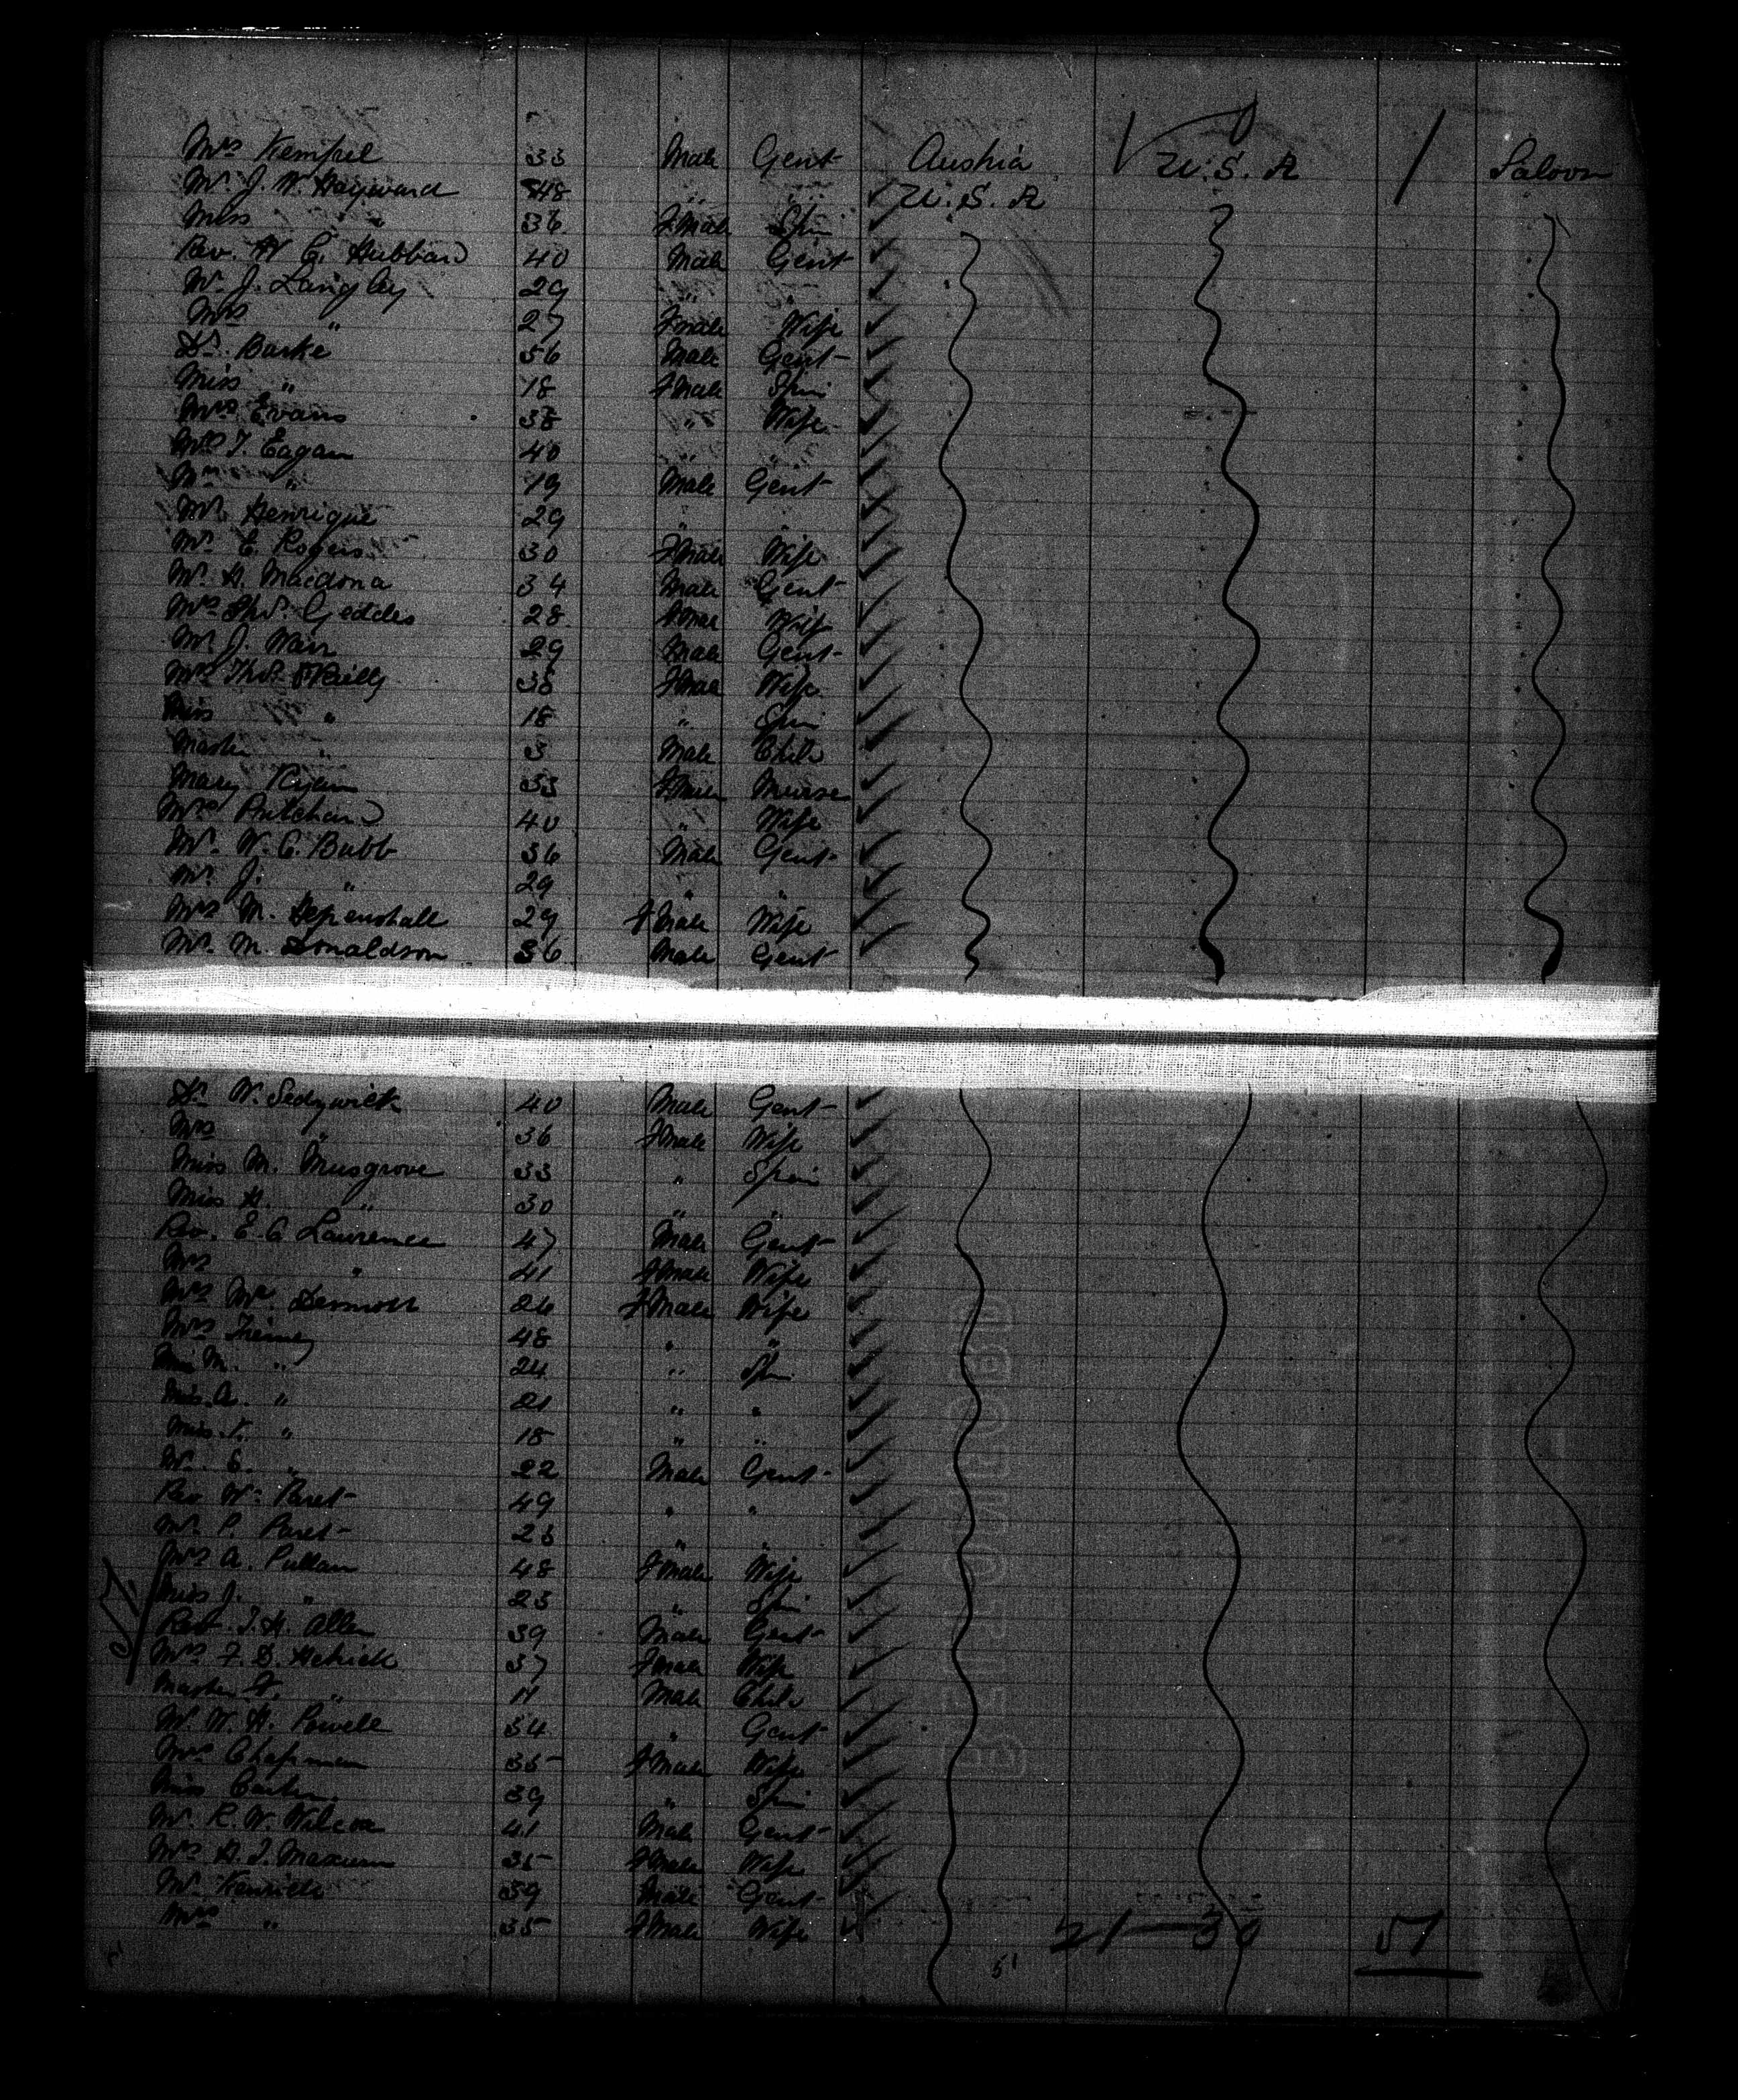 Mrs Kempel 33 Male Gent Austria U.S.A / Saloon
Mr. J. W. Hayward 48 " " U.S.A
Miss " 36 FMale Spin
Rev. W C. Hubbard 40 Male Gent
Mr. J. Langley 29 " "
Mrs " 27 Female Wife
Dr. Burke 56 Male Gent
Miss " 18 FMale Spin
Mrs Evans 38 " Wife
Mrs T. Eagan 40 " "
Mr " 19 Male Gent
Mr. Henrique 29 " "
Mrs E. Rogers 30 FMale Wife
Mr. H. Macdona 34 Male Gent
Mrs Thos. Geddes 28 FMale Wife
Mr J. Warr 29 Male Gent
Mrs Thos. O'Reilly 38 FMale Wife
Miss " 18 " Spin
Master " 3 Male Child
Mary Ryan 33 FMale Nurse
Mrs Pritchard 40 " Wife
Mr. W. C. Bubb 36 Male Gent
Mr J. " 29 " "
Mrs M. Hepenstall 29 FMale Wife
Mr. M. Donaldson 36 Male Gent
Dr. W. Sedgwick 40 Male Gent
Mrs " 36 FMale Wife
Miss M. Musgrove 33 " Spin
Miss H. " 30 " "
Rev. E. C Lawrence 47 Male Gent
Mrs " 41 FMale Wife
Mrs Mc Dermott 26 FMale Wife
Mrs Tierney 48 " "
Miss M. " 24 " Spin
Miss A. " 21 " "
Miss K. " 18 " "
Mr. C. " 22 Male Gent
Rev Wm Paret 49 " "
Mr. P. Paret 23 " "
Mrs A. Pullan 48 FMale Wife
Miss J. " 23 " Spin
Rev. T. H. Allen 39 Male Gent
Mrs F. D. Hetrick 37 FMale Wife
Master F. " 11 Male Child
Mr. W. H. Powell 34 " Gent
Mrs Chapman 35 FMale Wife
Miss Carter 39 " Spin
Mr. R. W. Wilcox 41 Male Gent
Mrs H. T. Maxum 35 FMale Wife
Mr. Kenrick 39 Male Gent
Mrs " 35 FMale Wife
21—30 51
51